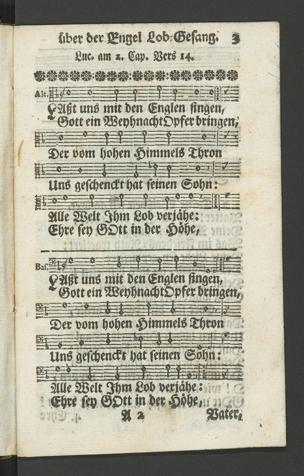 über der Engel Lob-Gesang. 3
Luc. am 2. Cap. Vers 14.
Alt.
LAßt uns mit den Englen singen,
Gott ein WeyhnachtOpfer bringen,
Der vom hohen Himmels Thron
Uns geschenckt hat seinen Sohn:
Alle Welt Ihm Lob verjähe:
Ehre sey GOtt in der Höhe,
Bas.
LAßt uns mit den Englen singen,
Gott ein WeyhnachtOpfer bringen,
Der vom hohen Himmels Thron
Uns geschenckt hat seinen Sohn:
Alle Welt Ihm Lob verjähe:
Ehre sey GOtt in der Höhe,
A 2 Vater,